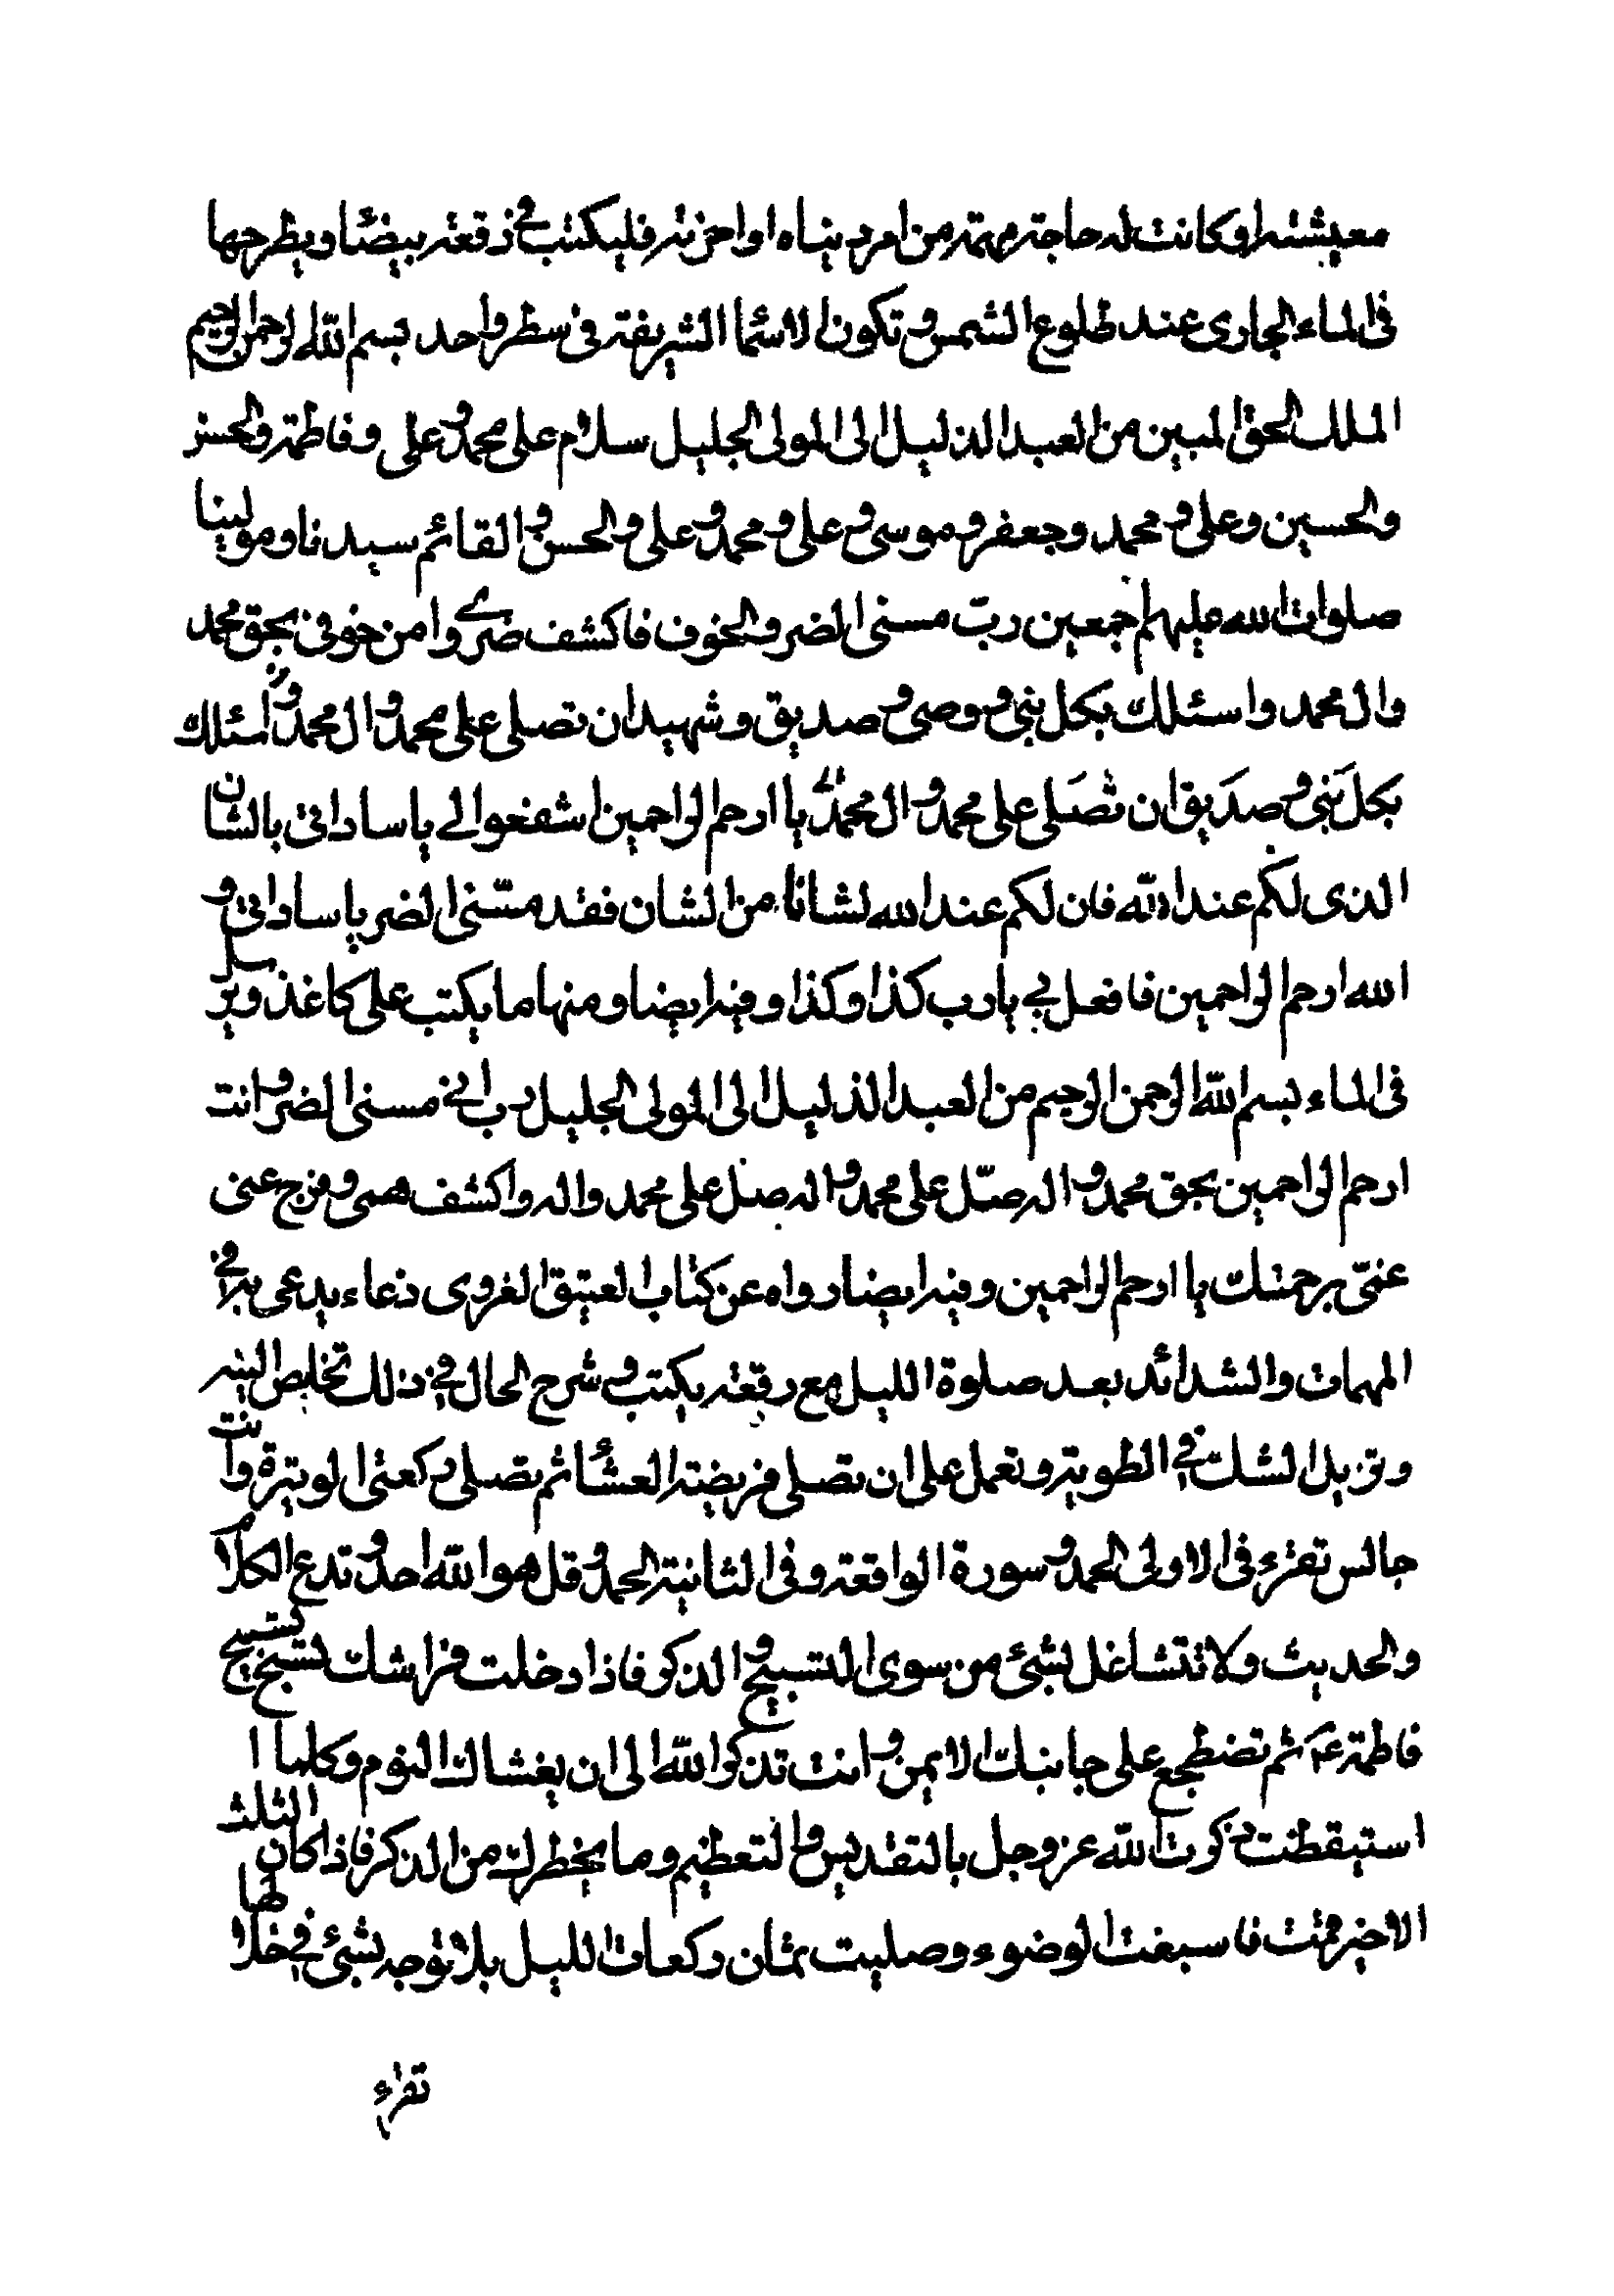 معيشته او كانت له حاجة مهمة من امر دنياه او اخرته فليكتب فى رقعة بيضآء و يطرحها
فى الماء الجارى عند طلوع الشمس و تكون الاسمآء الشريفة فى سطر واحد بسم الله الرحمن الرحيم
الملك الحق المبين من العبد الذليل الى المولى الجليل سلام على محمد و على و فاطمة و الحسن
و الحسين و على و محمد و جعفر و موسى و على و محمد و على و الحسن و القائم سيدنا و مولينا
صلوات الله عليهم اجمعين رب مسنى الضر و الخوف فاكشف ضرى و امن خوفى بحق محمد
و ال محمد و اسئلك بكل نبى و وصى و صديق و شهيد ان تصلى على محمد و ال محمد و اسئلك
بكل نبى و صديق ان تصلى على محمد و ال محمد يا ارحم الراحمين اشفعوا لى يا ساداتى بالشان
الذى لكم عند الله فان لكم عند الله لشانا من الشان فقد مسّنى الضر يا ساداتى و
الله ارحم الراحمين فافعل بى يا رب كذا و كذا و فيه ايضا و منها ما يكتب على كاغذ و يرسل
فى الماء بسم الله الرحمن الرحيم من العبد الذليل الى المولى الجليل رب انى مسنى الضر و انت
ارحم الراحمين بحق محمد و اله صلّ على محمد و اله صل على محمد و اله و اكشف همى و فرج عنى
غمّى برحمتك يا ارحم الراحمين و فيه ايضا رواه عن كتاب العتيق الغروى دعاء يدعى به فى
المهمات و الشدائد بعد صلوة الليل مع رقعة يكتب و شرح الحال فى ذلك تخلص النية
و تزيل الشك فى الطوية و تعمل على ان تصلى فريضة العشآء ثم تصلى ركعتى الوتيرة و انت
جالس تقرء فى الاولى الحمد و سورة الواقعة و فى الثانية الحمد و قل هو الله احد و تدع الكلام
و الحديث و لا تتشاغل بشئ من سوى التسبيح و الذكر فاذا دخلت فراشك تسبح تسبيح
فاطمة ع ثم تضطجع على جانبك الايمن و انت تذكر الله الى ان يغشاك النوم و كلما ا
استيقظت ذكرت الله عز و جل بالتقديس و التعظيم و ما يخطرك من الذكر فاذا كان الثلث
الاخير قمت فاسبغت الوضوء و صليت ثمان ركعات الليل بلا توجه بشئ فى خلالها
تقرء